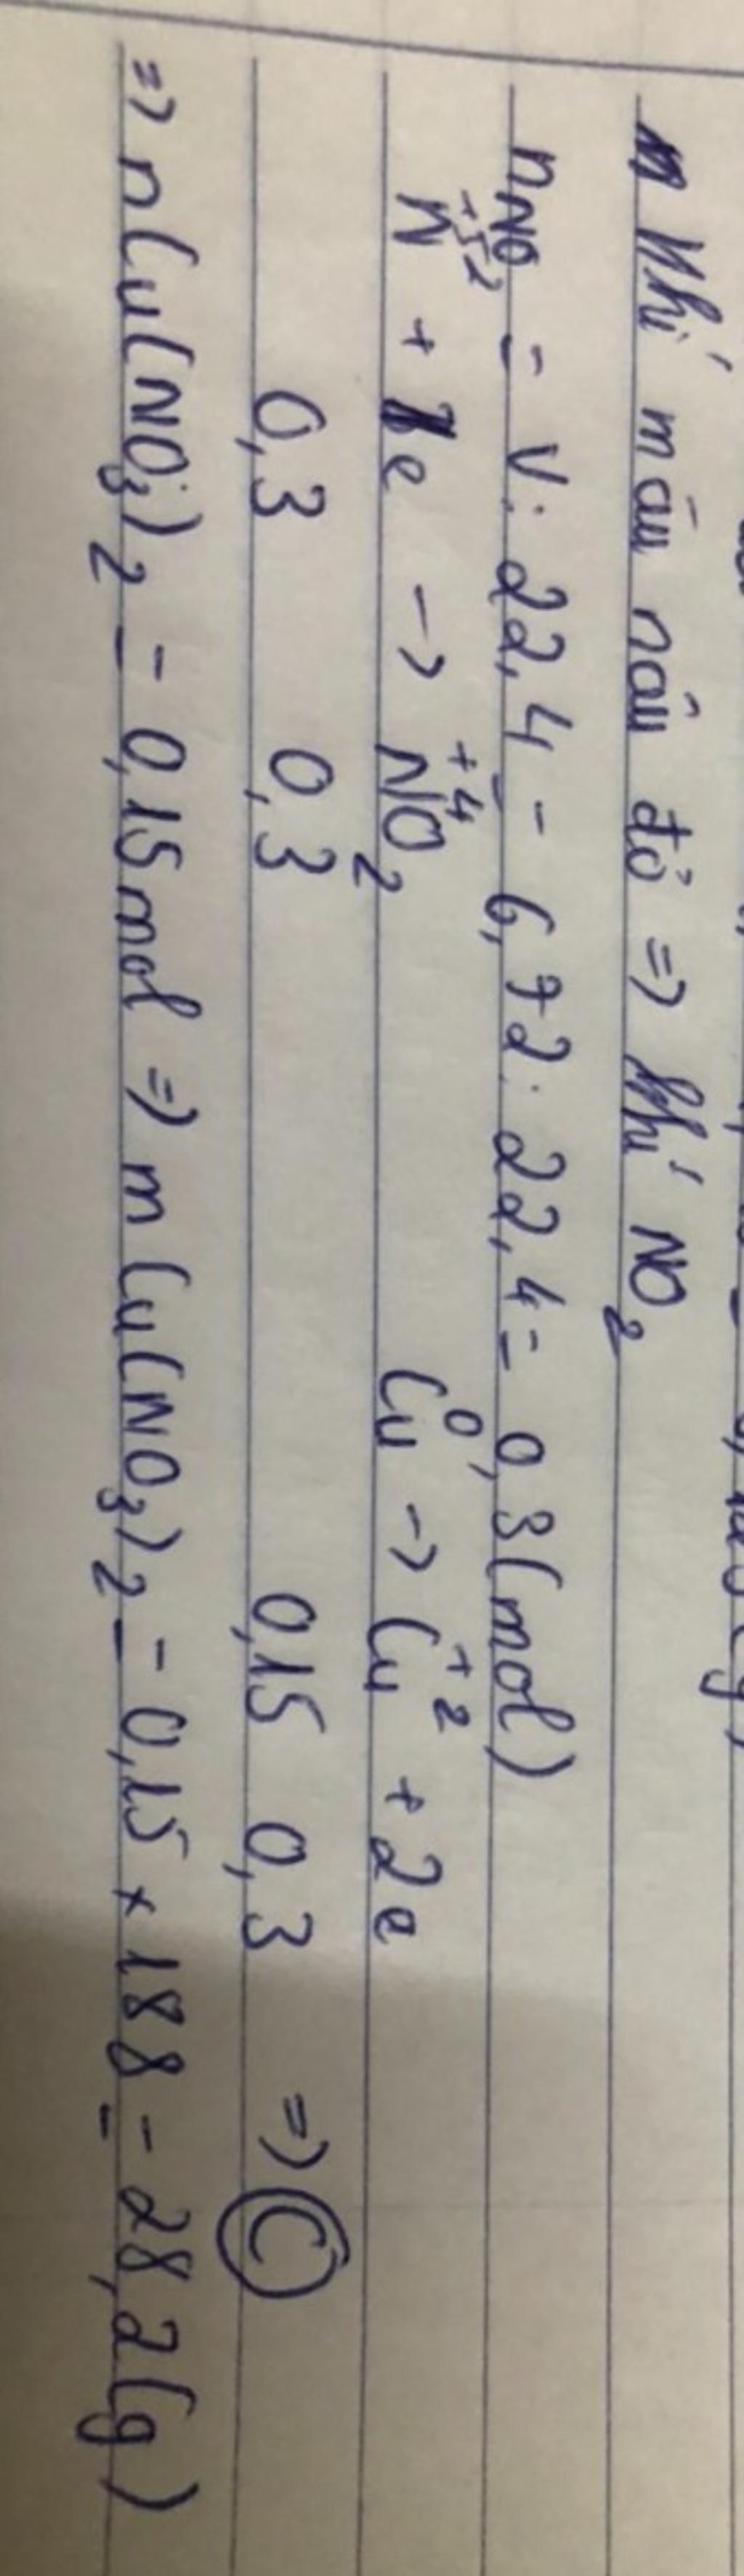 Khí màu nâu đỏ => khí NO2
nNO2 = V : 22,4 = 6,72 : 22,4 = 0,3 (mol)
N+5 + 1e -> N+4O2 Cu0 -> Cu+2 + 2e
0,3 0,3 0,15 0,3 => C
=> nCu(NO3)2 = 0,15 mol => mCu(NO3)2 = 0,15 × 188 = 28,2 (g)